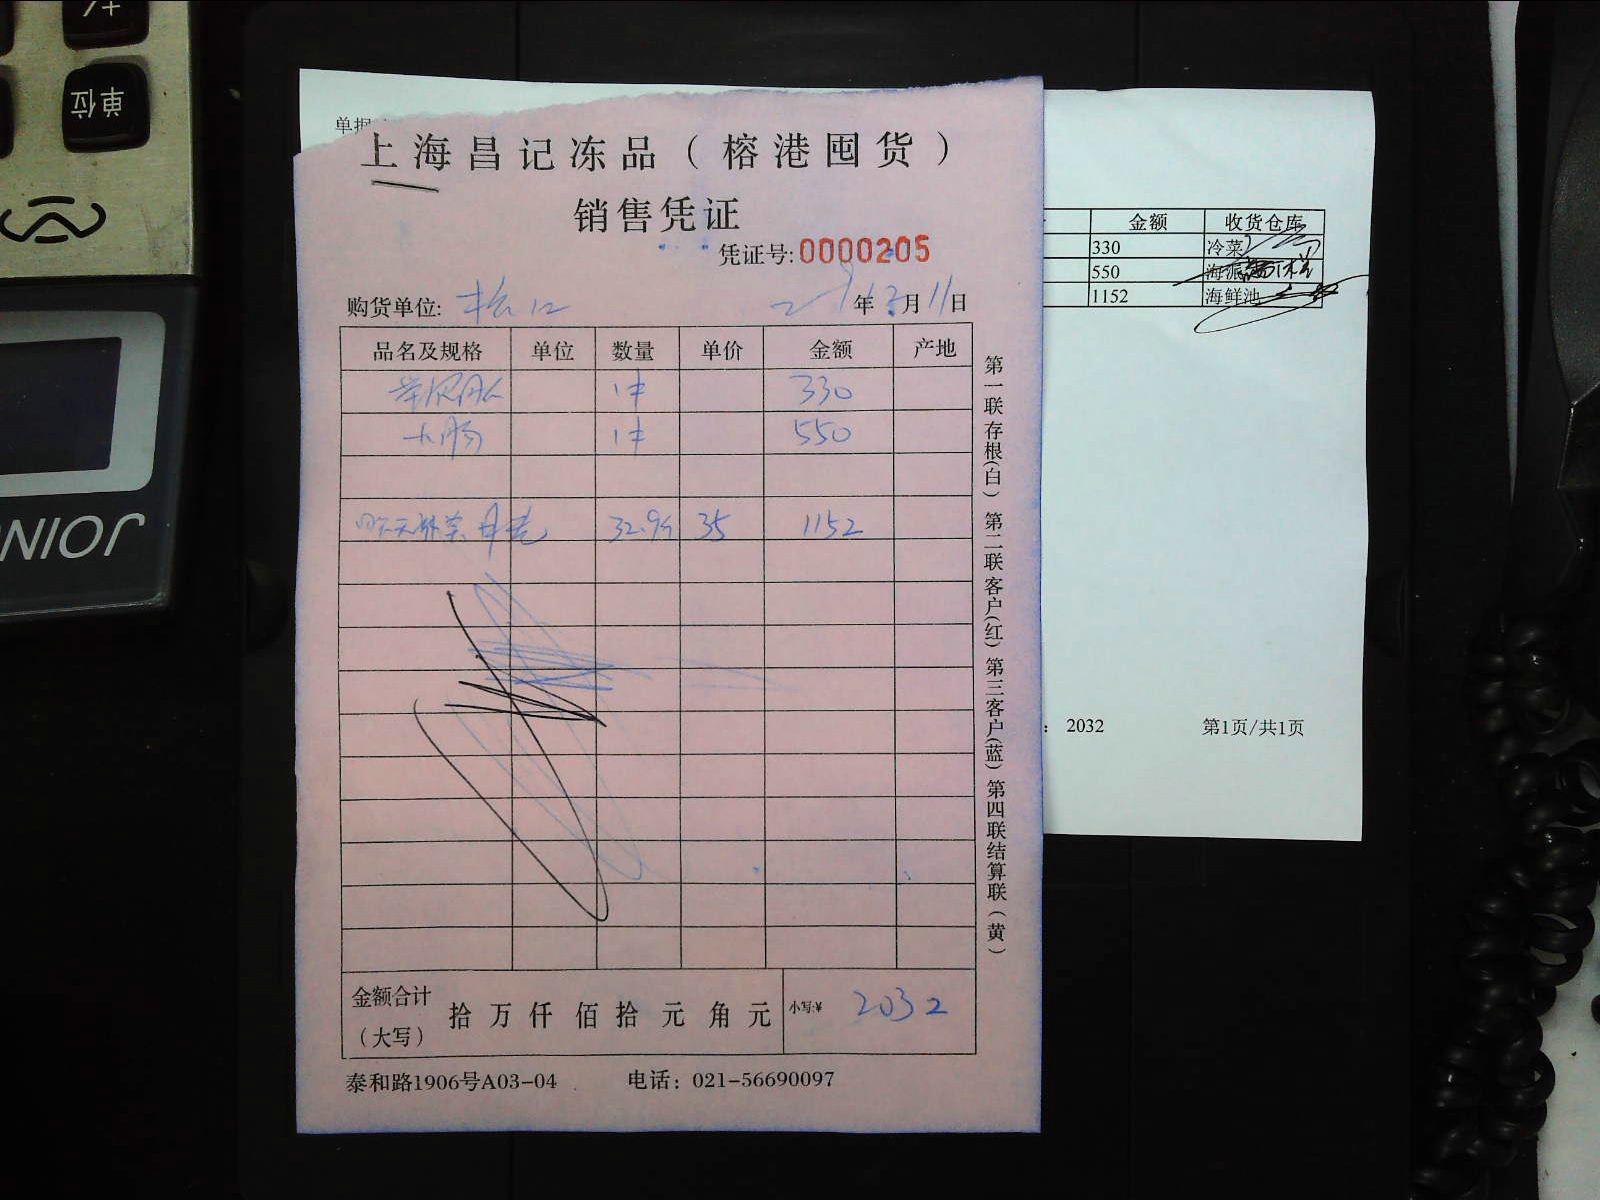 单位
JOINC
单据
上海昌记冻品（榕港囤货）
销售凭证
凭证号:0000205
购货单位: 松江 年 月11日
品名及规格 单位 数量 单价 金额 产地
1件 330
大肠 1件 550
昨天 32.9斤 35 1152
金额合计（大写） 拾 万 仟 佰 拾 元 角 元 小写:¥ 2032
泰和路1906号A03-04 电话：021-56690097
第一联存根(白) 第二联客户(红) 第三客户(蓝) 第四联结算联(黄)
金额 收货仓库
330 冷菜
550 海派
1152 海鲜池
: 2032 第1页/共1页